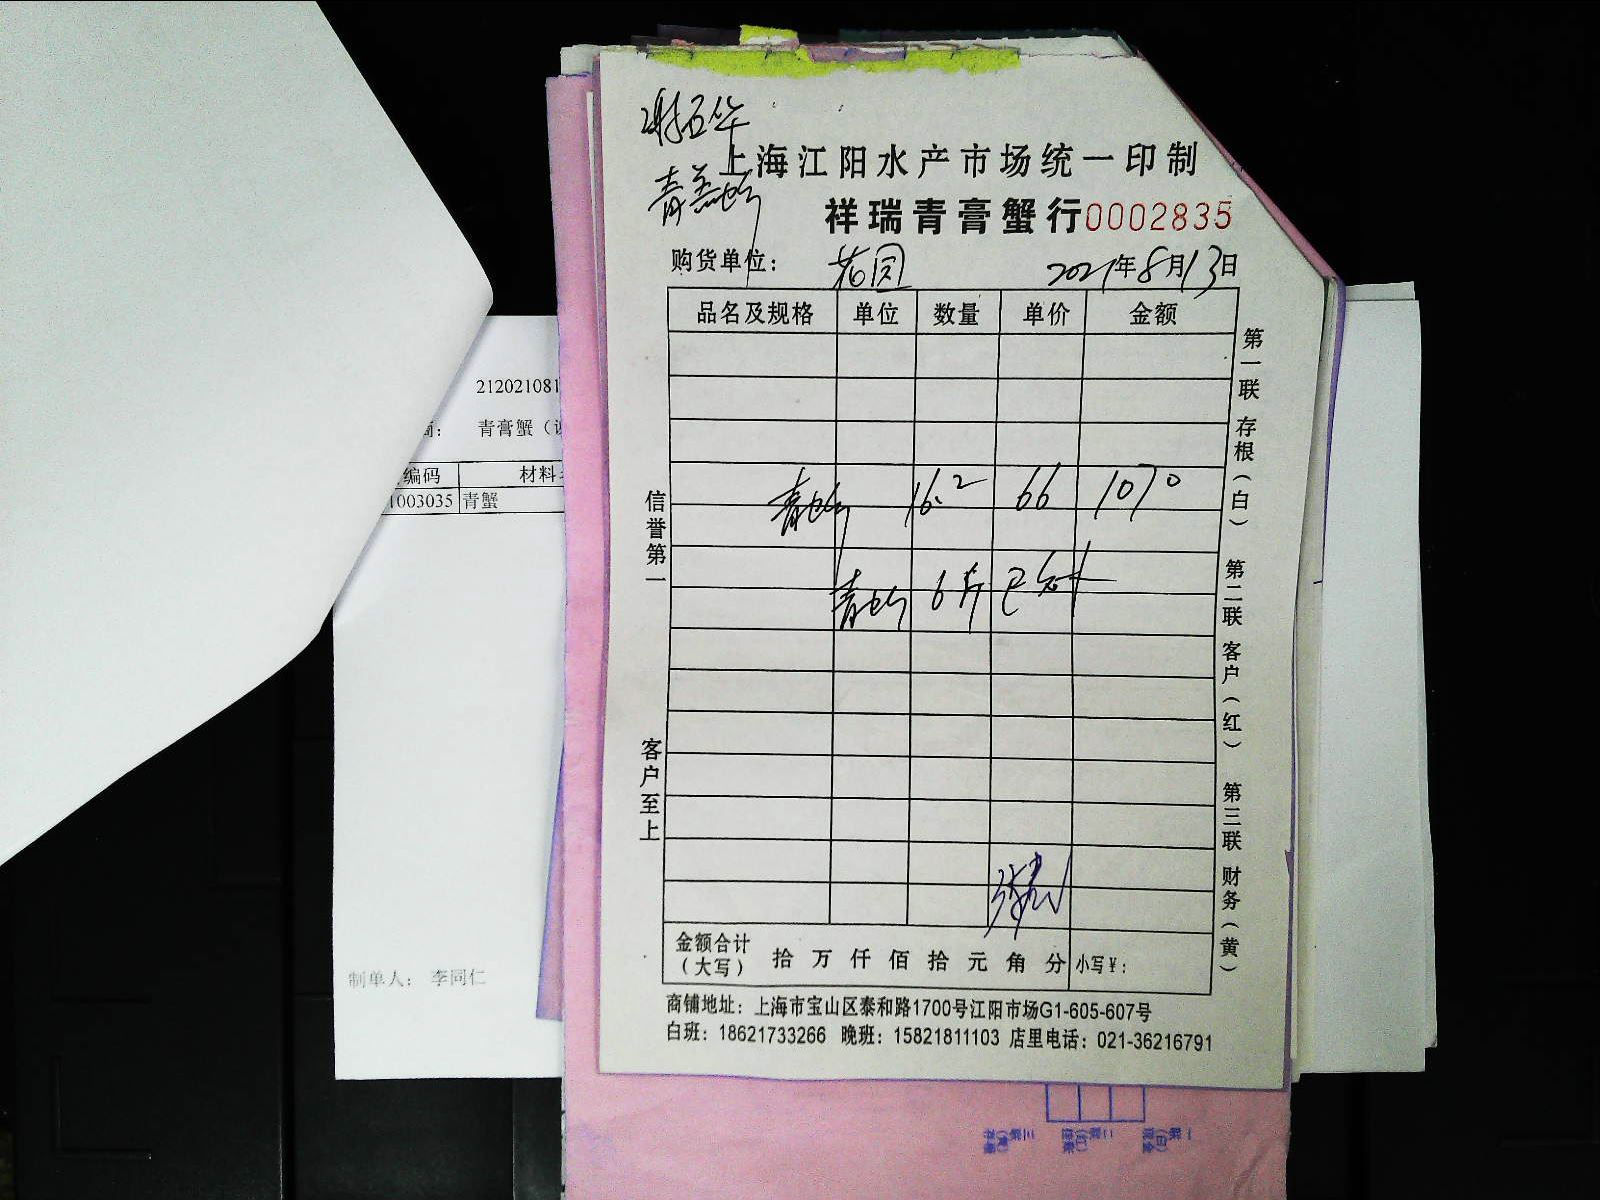 上海江阳水产市场统一印制
祥瑞青膏蟹行0002835
购货单位: 花园 2021年8月13日
品名及规格 单位 数量 单价 金额
青蟹 16.2 66 1070
青蟹 6斤 已
金额合计(大写) 拾 万 仟 佰 拾 元 角 分 小写¥:
商铺地址: 上海市宝山区泰和路1700号江阳市场G1-605-607号
白班: 18621733266 晚班: 15821811103 店里电话: 021-36216791
信誉第一
客户至上
第一联 存根(白) 第二联 客户(红) 第三联 财务(黄)
212021081
商: 青膏蟹(
编码 材料
1003035 青蟹
制单人: 李同仁